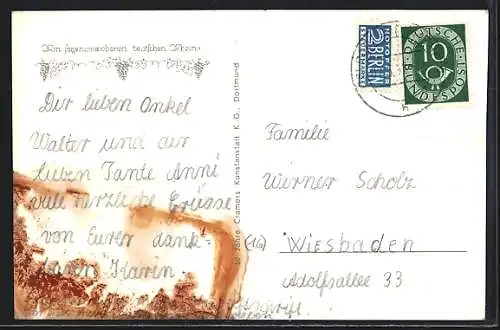 Am sagenumwobenen deutschen Rhein
Dir lieben Onkel
Walter und der
lieben Tante Anni
viele herzliche Grüsse
von Eurer dank-
baren Karin.
Cramers Kunstanstalt K. G., Dortmund
NOTOPFER
2 BERLIN
STEUERMARKE
DEUTSCHE
10
BUNDESPOST
Familie
Werner Scholz
(16) Wiesbaden
Adolfsallee 33